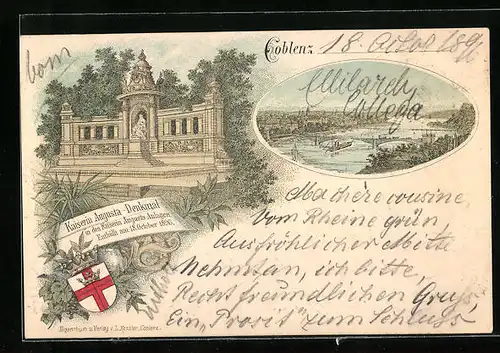 Coblenz
18. October 1896
vom
Kaiserin Augusta-Denkmal
in den Kaiserin Augusta-Anlagen.
Enthüllt am 18. October 1896.
Ma chère cousine,
Vom Rheine grün,
Aus fröhlicher Mitte
Nehmt an, ich bitte,
Recht freundlichen Gruss,
Ein „Prosit" zum Schluss
Eigenthum u. Verlag v. L. Kessler, Coblenz.